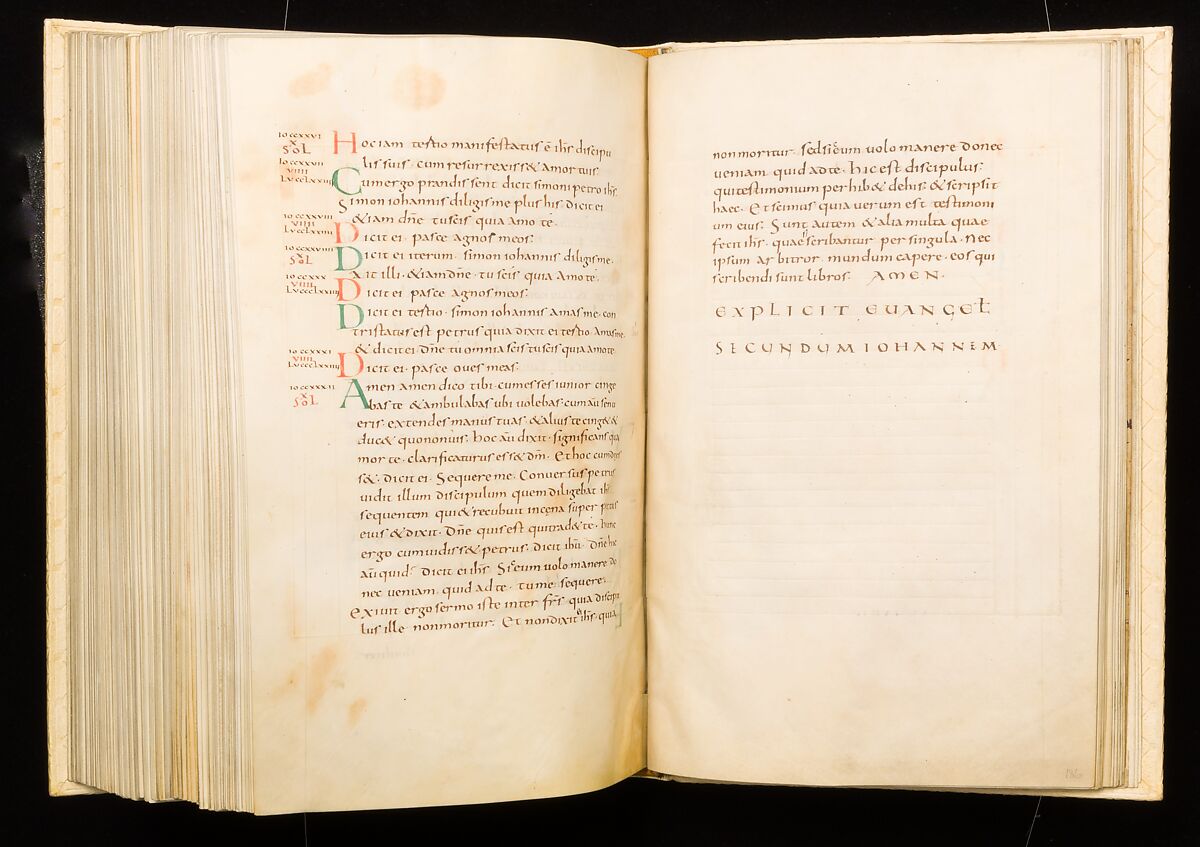 IO CCXXVI
X
SOL
IO CCXXVII
VIIII
LV CCLXXIIII
IO CCXXVIII
VIIII
IO CCXXVIIII
X
SOL
IO CCXXX
VIIII
IO CCXXXI
VIIII
IO CCXXXII
X
SOL
Hoc iam tertio manifestatus ē ihs discipu
lis suis. cum resurrexiss& a mortuis.
Cum ergo prandissent dicit simoni petro ihs.
Simon iohannis diligis me plus his. dicit ei
&iam dn̄e tu scis quia amo te.
Dicit ei. pasce agnos meos.
Dicit ei iterum. simon iohannis diligis me.
Ait illi. &iam dn̄e. tu scis quia amo te.
Dicit ei pasce agnos meos.
Dicit ei tertio. simon iohannis amas me. con
tristatus est petrus quia dixit ei tertio. Amas me.
& dicit ei. Dn̄e tu omnia scis tu scis quia amo te.
Dicit ei. pasce oues meas.
Amen amen dico tibi. cum esses iunior cinge
bas te & ambulabas ubi uolebas. cum aū senu
eris. extendes manus tuas. & alius te cing& &
duc& quo non uis. hoc aū dixit. significans qua
morte. clarificaturus ess& dm̄. Et hoc cum dixis
s&. dicit ei. Sequere me. Conuersus petrus
uidit illum discipulum quem diligebat ihs
sequentem qui & recubuit in cena super pectus
eius & dixit. Dn̄e quis est qui trad& te. hunc
ergo cum uidiss& petrus. dicit ihū. Dn̄e hic
aū quid. Dicit ei ihs. Sic eum uolo manere do
nec ueniam. quid ad te. tu me sequere.
Exiuit ergo sermo iste inter frs̄. quia discipu
lus ille non moritur. Et non dixit ei ihs. quia
non moritur. sed sic eum uolo manere donec
ueniam. quid ad te. hic est discipulus.
qui testimonium perhib& de his. & scripsit
haec. Et scimus quia uerum est testimoni
um eius. Sunt autem & alia multa quae
fecit ihs. quae si scribantur per singula. nec
ipsum arbitror mundum capere. eos qui
scribendi sunt libros. AMEN.
EXPLICIT EUANGEL
SECUNDUM IOHANNEM
186